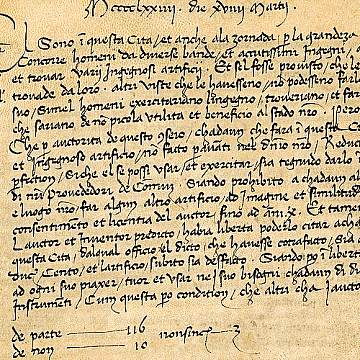 MCCCCLXXIIII. die XVIIII Martij.
El Sono i questa Cita, et anche ala zornada, p la grandeza
Concorre homeni da diverse bande, et acutissimi Ingegni,
et trovar Varij Ingegnosi artificij. Et se l fosse provisto, che le
trovade da loro. altri Viste che le havesseno, no podesseno far
suo, Simel homeni exercitariano l ingegno, troveriano, et far
che sariano de no picola Utilita et beneficio al stado nro.
Che p auctorita de questo 9seio, chadaun che fara i questa C
et Ingegnoso artificio, no facto p avati nel dnio nro, Redu
pfection, Siche el se possi Usar, et exercitar, sia tegnudo darlo i
di nri Provededori de Comun. Siando prohibito a chadaun al
e luogo nro, far algun altro artificio, ad Imagine et Similitud
consentimeto et licentia del auctor, fino ad ani X. Et tame
L auctor et Inventor predicto, habia liberta poderlo citar a cha
questa Cita, dal qual officio el dicto, che havesse cotrafacto, Sia
duc. Cento, et l artificio, subito sia desfacto. Siando po i libert
ad ogni suo piaxer, tuor et usar ne i suo bisogni chadaun di di
Instrumenti, Cum questa po condition, che altri cha i aucto
de parte 116
de non 10
nonsince 3